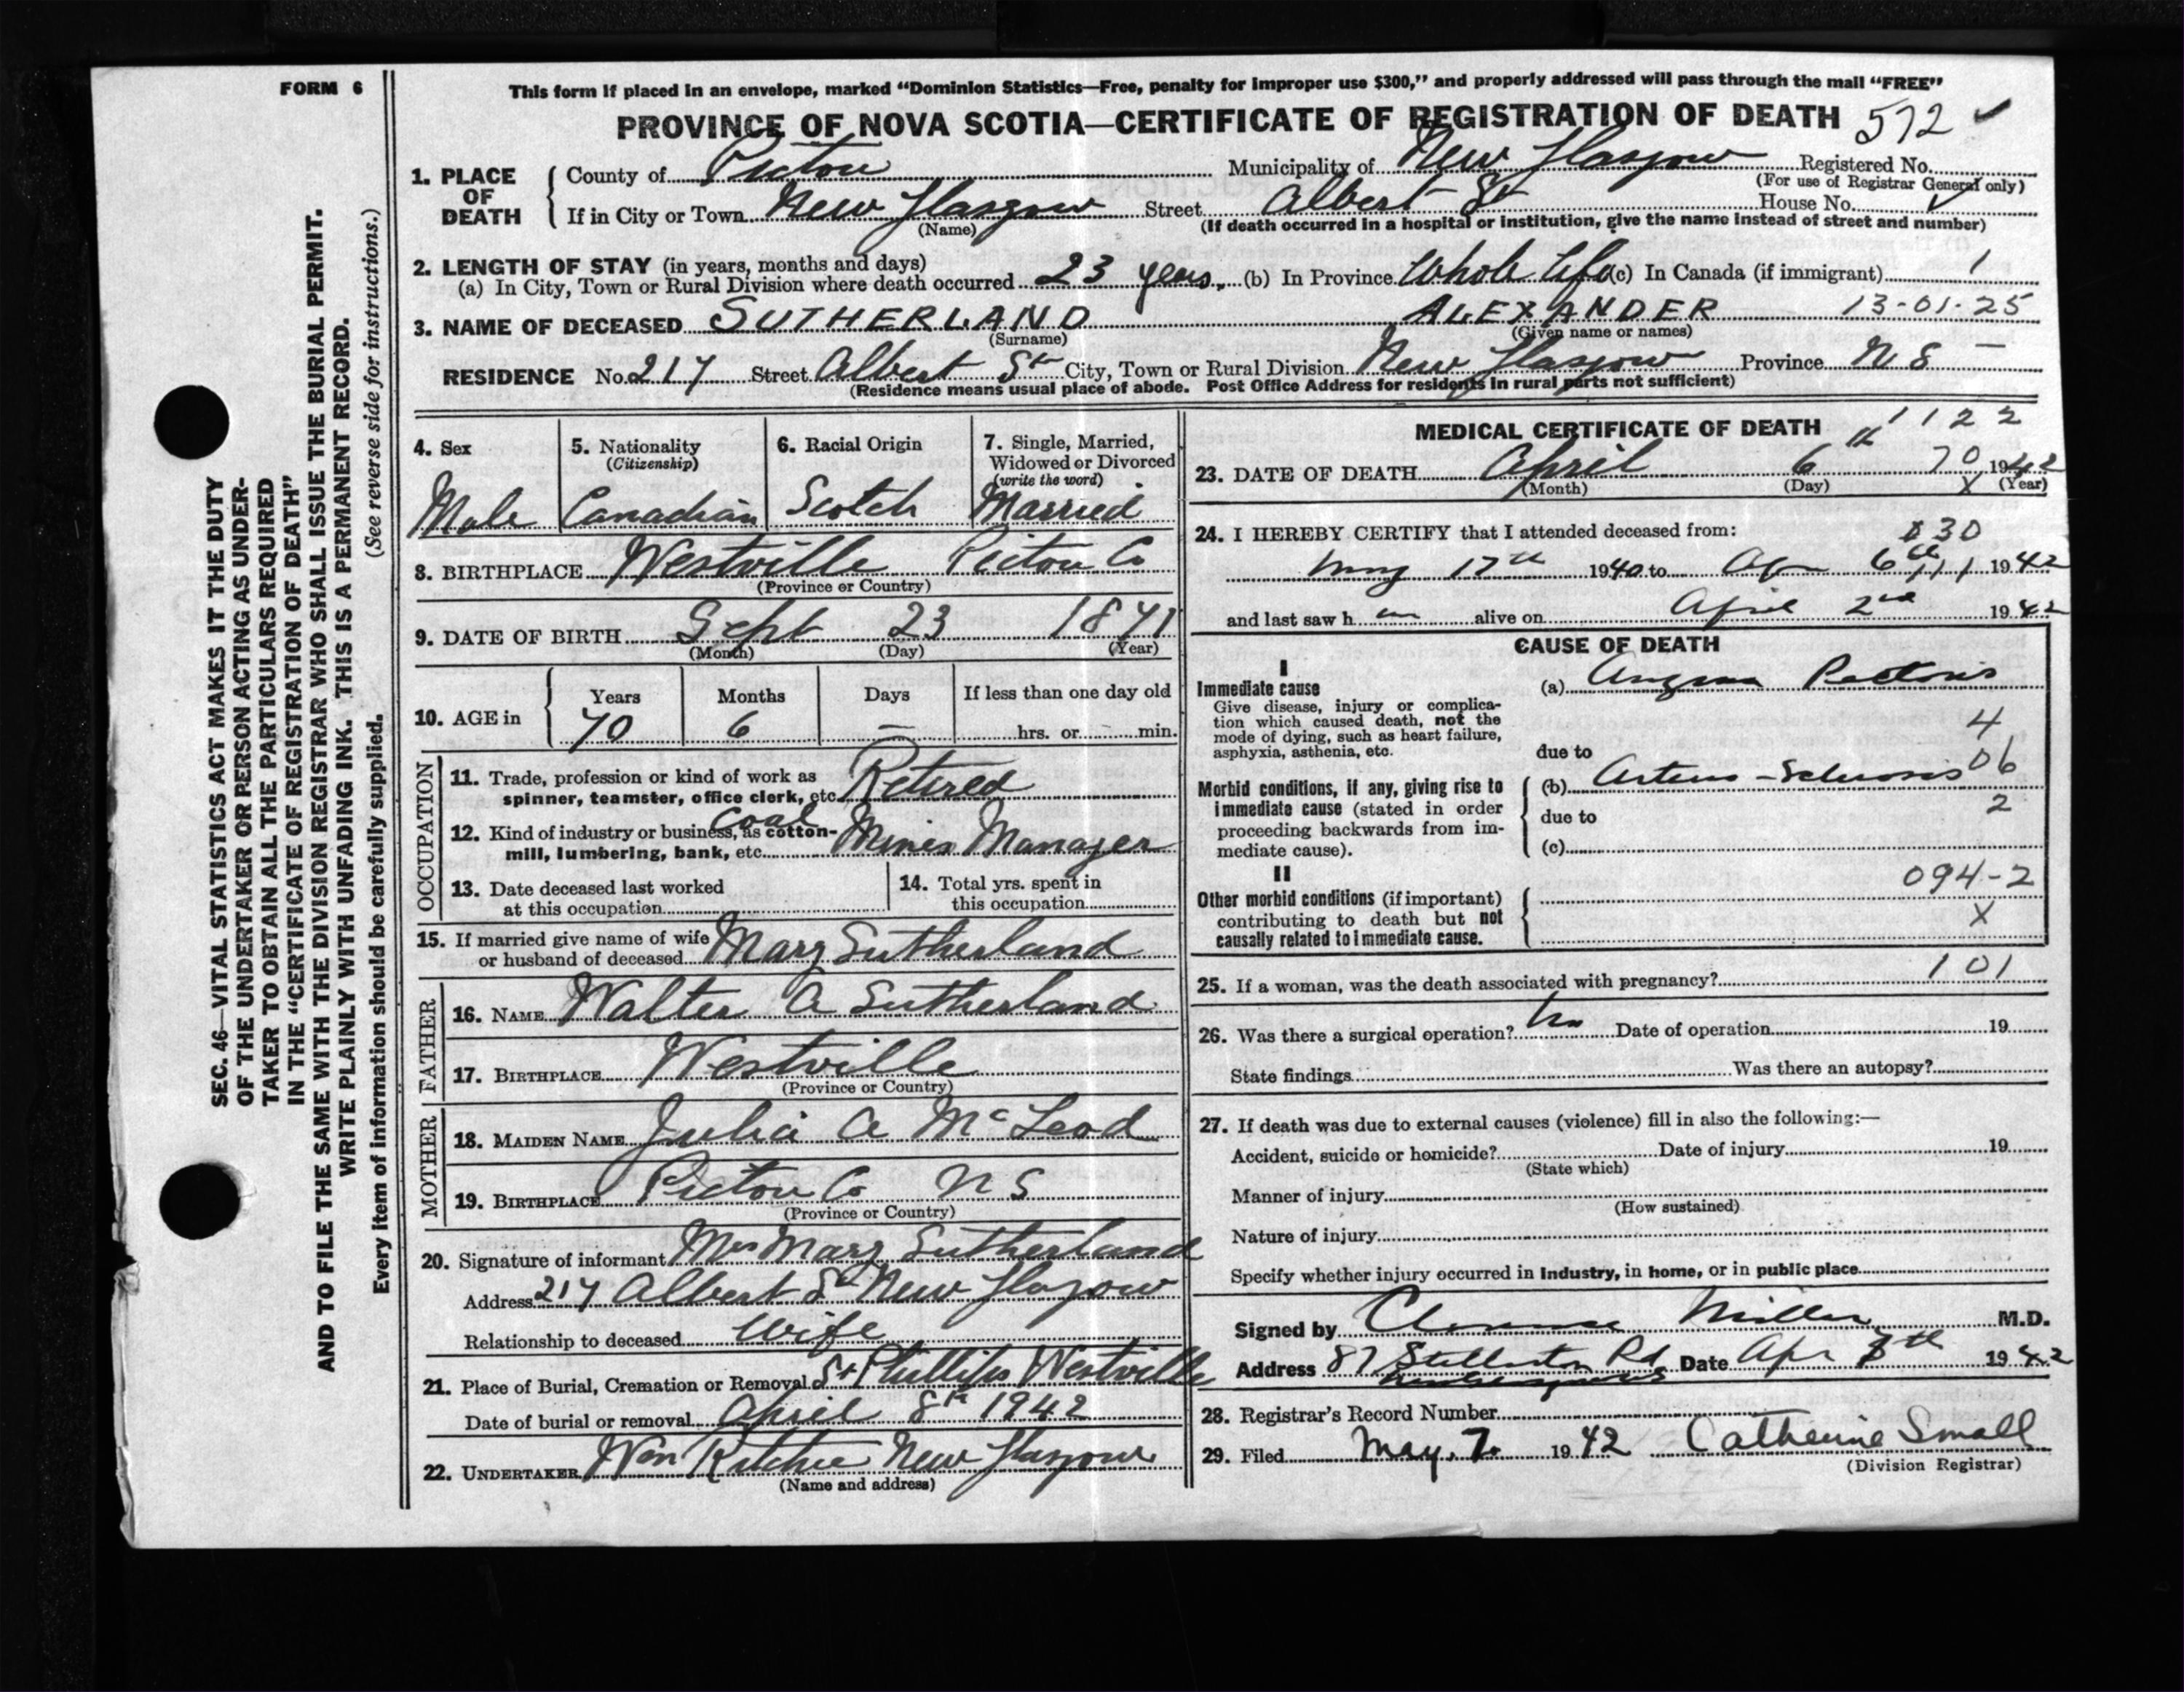 FORM 6
This form if placed in an envelope, marked "Dominion Statistics—Free, penalty for improper use $300," and properly addressed will pass through the mail "FREE"
PROVINCE OF NOVA SCOTIA—CERTIFICATE OF REGISTRATION OF DEATH 572 ✓
1. PLACE OF DEATH
County of Pictou Municipality of New Glasgow Registered No.
(For use of Registrar General only)
If in City or Town New Glasgow Street Albert St House No. ✓
(Name) (If death occurred in a hospital or institution, give the name instead of street and number)
2. LENGTH OF STAY (in years, months and days)
(a) In City, Town or Rural Division where death occurred 23 years. (b) In Province Whole Life (c) In Canada (if immigrant) 1
3. NAME OF DECEASED SUTHERLAND ALEXANDER 13-01-25
(Surname) (Given name or names)
RESIDENCE No. 217 Street Albert St City, Town or Rural Division New Glasgow Province N S —
(Residence means usual place of abode. Post Office Address for residents in rural parts not sufficient)
4. Sex
Male
5. Nationality
(Citizenship)
Canadian
6. Racial Origin
Scotch
7. Single, Married,
Widowed or Divorced
(write the word)
Married
8. BIRTHPLACE Westville Pictou Co
(Province or Country)
9. DATE OF BIRTH Sept 23 1871
(Month) (Day) (Year)
10. AGE in
Years Months Days If less than one day old
70 6 — hrs. or min.
OCCUPATION
11. Trade, profession or kind of work as
spinner, teamster, office clerk, etc. Retired
12. Kind of industry or business, as cotton-
mill, lumbering, bank, etc. Coal Mines Manager
13. Date deceased last worked
at this occupation
14. Total yrs. spent in
this occupation
15. If married give name of wife
or husband of deceased Mary Sutherland
FATHER
16. NAME Walter A Sutherland
17. BIRTHPLACE Westville
(Province or Country)
MOTHER
18. MAIDEN NAME Julia A McLeod
19. BIRTHPLACE Pictou Co N S
(Province or Country)
20. Signature of informant Mrs Mary Sutherland
Address 217 Albert St New Glasgow
Relationship to deceased Wife
21. Place of Burial, Cremation or Removal St Phillips Westville
Date of burial or removal April 8th 1942
22. UNDERTAKER Wm Ritchie New Glasgow
(Name and address)
MEDICAL CERTIFICATE OF DEATH 1 1 2 2
23. DATE OF DEATH April 6th 70 1942
(Month) (Day) X (Year)
24. I HEREBY CERTIFY that I attended deceased from: 30
17th 1940 to Apr 6th 111 1942
and last saw h m alive on April 2nd 1942
CAUSE OF DEATH
I
Immediate cause
Give disease, injury or complica-
tion which caused death, not the
mode of dying, such as heart failure,
asphyxia, asthenia, etc.
(a) Angina Pectoris
4
due to
Morbid conditions, if any, giving rise to
immediate cause (stated in order
proceeding backwards from im-
mediate cause).
(b) Arterio-Sclerosis 06
2
due to
(c)
II
Other morbid conditions (if important)
contributing to death but not
causally related to immediate cause.
094-2
X
25. If a woman, was the death associated with pregnancy? 101
26. Was there a surgical operation? No Date of operation 19
State findings Was there an autopsy?
27. If death was due to external causes (violence) fill in also the following:—
Accident, suicide or homicide? Date of injury 19
(State which)
Manner of injury
(How sustained)
Nature of injury
Specify whether injury occurred in industry, in home, or in public place
Signed by Clarence Miller M.D.
Address 87 Stellarton Rd Date Apr 7th 1942
28. Registrar's Record Number
29. Filed May. 7. 1942 Catherine Small
(Division Registrar)
SEC. 46—VITAL STATISTICS ACT MAKES IT THE DUTY
OF THE UNDERTAKER OR PERSON ACTING AS UNDER-
TAKER TO OBTAIN ALL THE PARTICULARS REQUIRED
IN THE "CERTIFICATE OF REGISTRATION OF DEATH"
AND TO FILE THE SAME WITH THE DIVISION REGISTRAR WHO SHALL ISSUE THE BURIAL PERMIT.
WRITE PLAINLY WITH UNFADING INK. THIS IS A PERMANENT RECORD.
Every item of information should be carefully supplied. (See reverse side for instructions.)